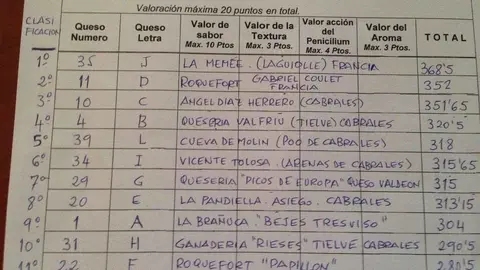 Valoración máxima 20 puntos en total.
CLASIFICACION Queso Numero Queso Letra Valor de sabor Max. 10 Ptos Valor de la Textura Max. 3 Ptos. Valor acción del Penicilium Max. 4 Ptos. Valor del Aroma Max. 3 Ptos. TOTAL
1º 35 J LA MEMÉE. (LAGUIOLLE) FRANCIA 368'5
2º 11 D ROQUEFORT GABRIEL COULET FRANCIA 352
3º 10 C ANGEL DIAZ HERRERO (CABRALES) 351'65
4º 4 B QUESERIA VALFRIU (TIELVE) CABRALES 320'5
5º 39 L CUEVA DE MOLIN (POO DE CABRALES) 318
6º 34 I VICENTE TOLOSA. (ARENAS DE CABRALES) 315'65
7º 29 G QUESERIA "PICOS DE EUROPA" QUESO VALDEON 315
8º 20 E LA PANDIELLA. ASIEGO. CABRALES 313'15
9º 1 A LA BRAÑUCA "BEJES TRESVISO" 304
10º 31 H GANADERIA "RIESES" TIELVE CABRALES 290'5
11º 22 F ROQUEFORT "PAPILLON" 280'5